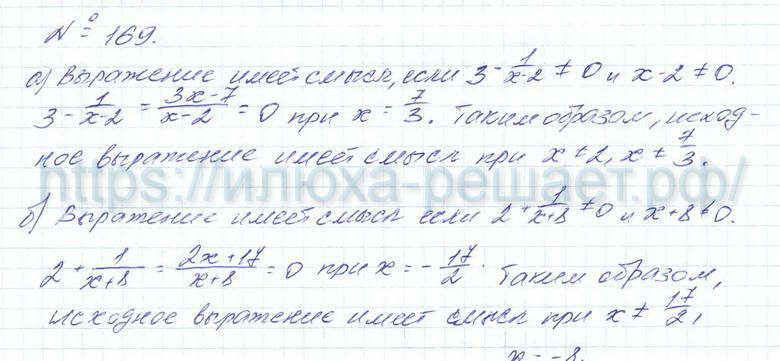 № 169.
а) Выражение имеет смысл, если 3 - 1/(x-2) ≠ 0 и x-2 ≠ 0.
3 - 1/(x-2) = (3x-7)/(x-2) = 0 при x = 7/3. Таким образом, исход-
ное выражение имеет смысл при x ≠ 2, x ≠ 7/3.
https://илюха-решает.рф/
б) Выражение имеет смысл если 2 + 1/(x+8) ≠ 0 и x+8 ≠ 0.
2 + 1/(x+8) = (2x+17)/(x+8) = 0 при x = - 17/2. Таким образом,
исходное выражение имеет смысл при x ≠ 17/2,